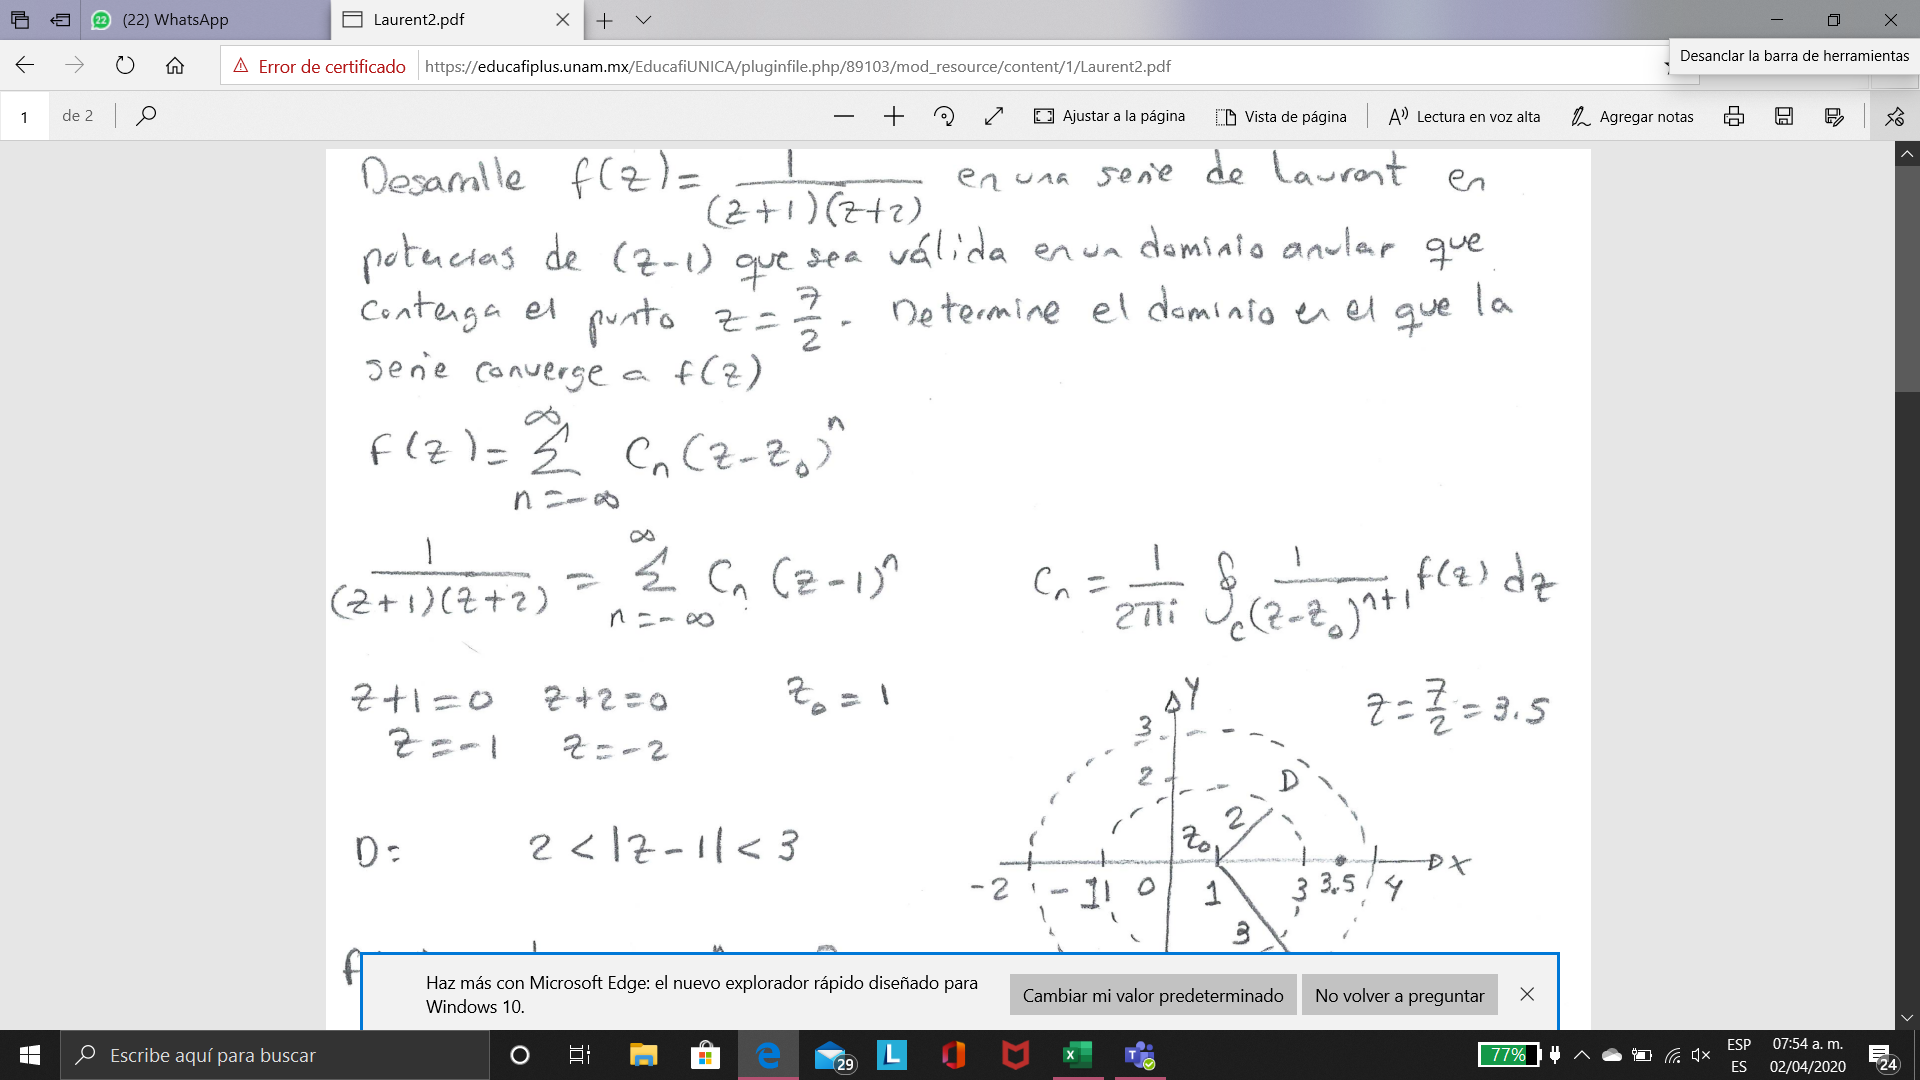 (22) WhatsApp
Laurent2.pdf
Error de certificado
https://educafiplus.unam.mx/EducafiUNICA/pluginfile.php/89103/mod_resource/content/1/Laurent2.pdf
Desanclar la barra de herramientas
1 de 2
Ajustar a la página
Vista de página
Lectura en voz alta
Agregar notas
Desarrolle f(z)= 1/((z+1)(z+2)) en una serie de Laurent en
potencias de (z-1) que sea válida en un dominio anular que
contenga el punto z=7/2. Determine el dominio en el que la
serie converge a f(z)
f(z)= ∑_{n=-∞}^{∞} C_n (z-z_0)^n
1/((z+1)(z+2)) = ∑_{n=-∞}^{∞} C_n (z-1)^n
C_n = 1/(2πi) ∮_C 1/(z-z_0)^{n+1} f(z) dz
z+1=0 z+2=0 z_0=1
z=-1 z=-2
z=7/2=3.5
D: 2<|z-1|<3
Y
3
2
D
2
z_0
-2 -1 0 1 3 3.5 4 X
3
Haz más con Microsoft Edge: el nuevo explorador rápido diseñado para
Windows 10.
Cambiar mi valor predeterminado
No volver a preguntar
Escribe aquí para buscar
29
77%
ESP
ES
07:54 a. m.
02/04/2020
24